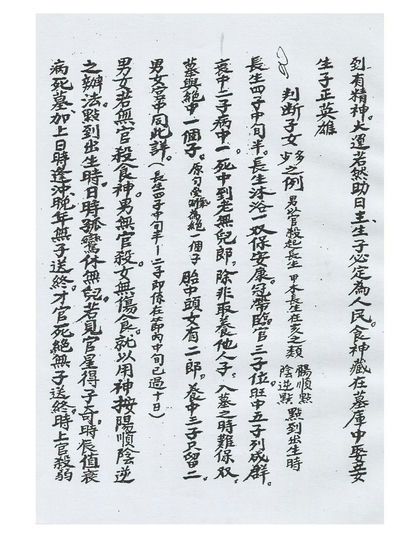 到有精神。大運若然助日主、生子必定為人民。食神藏在墓庫中娶妾女
生子正英雄
判断子女多少之例 男以官殺起長生 甲木長生在亥之類 陽順點 陰逆點 點到出生時
長生四子中旬半。長生沐浴一双保安康。冠帶臨官三子位。旺中五子列成群。
衰中二子病中一。死中到老無兒郎。除非取養他人子。入墓之時難保双。
墓與絕中一個子。原句受
為絕一個子 胎中頭女有二郎。養中三子只留二。
男女宮中同此詳。(長生四子中旬半—二子即係在節內中旬已過十日)
男女若無官殺食神。男無官殺女無傷食。就以用神按陽順陰逆
之辦法。點到出生時。日時孤鸞休無兒。若見官星得子奇。時辰值衰
病死墓。加上日時逢沖。晚年無子送終。才官死絕無子送終。時上官殺